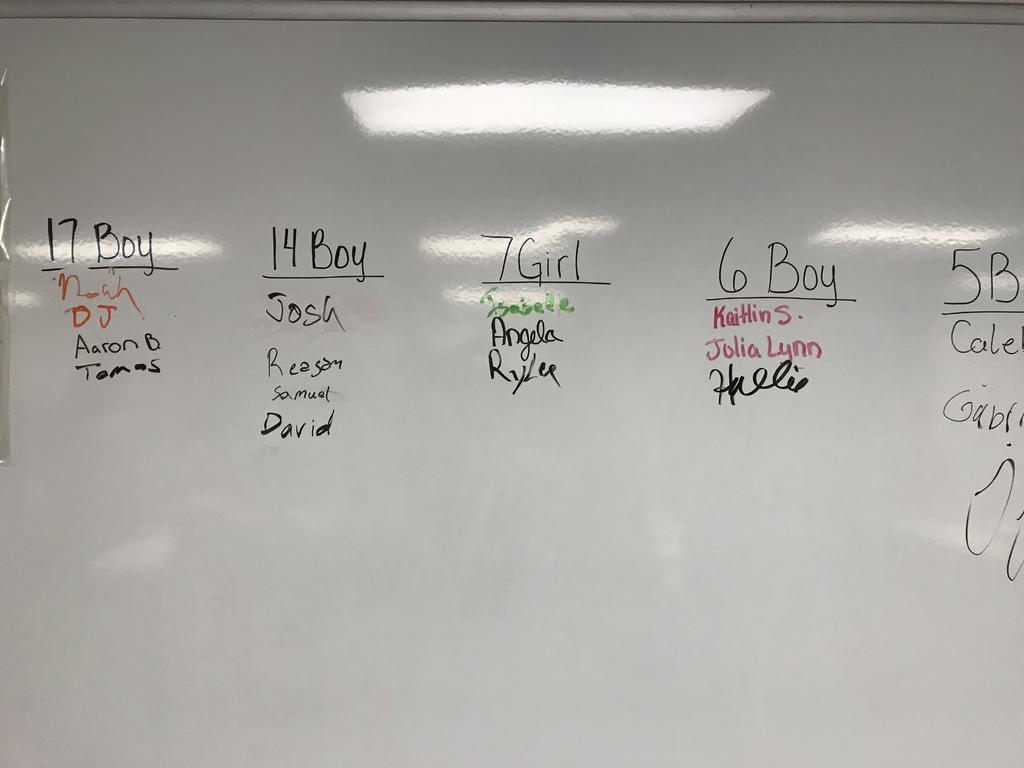 17 Boy
Noah
DJ
Aaron B
Tomas
14 Boy
Josh
Reagan
Samuel
David
7 Girl
Isabelle
Angela
Rylee
6 Boy
Kaitlin S.
Julia Lynn
Hallie
5 B
Cale
Gabr